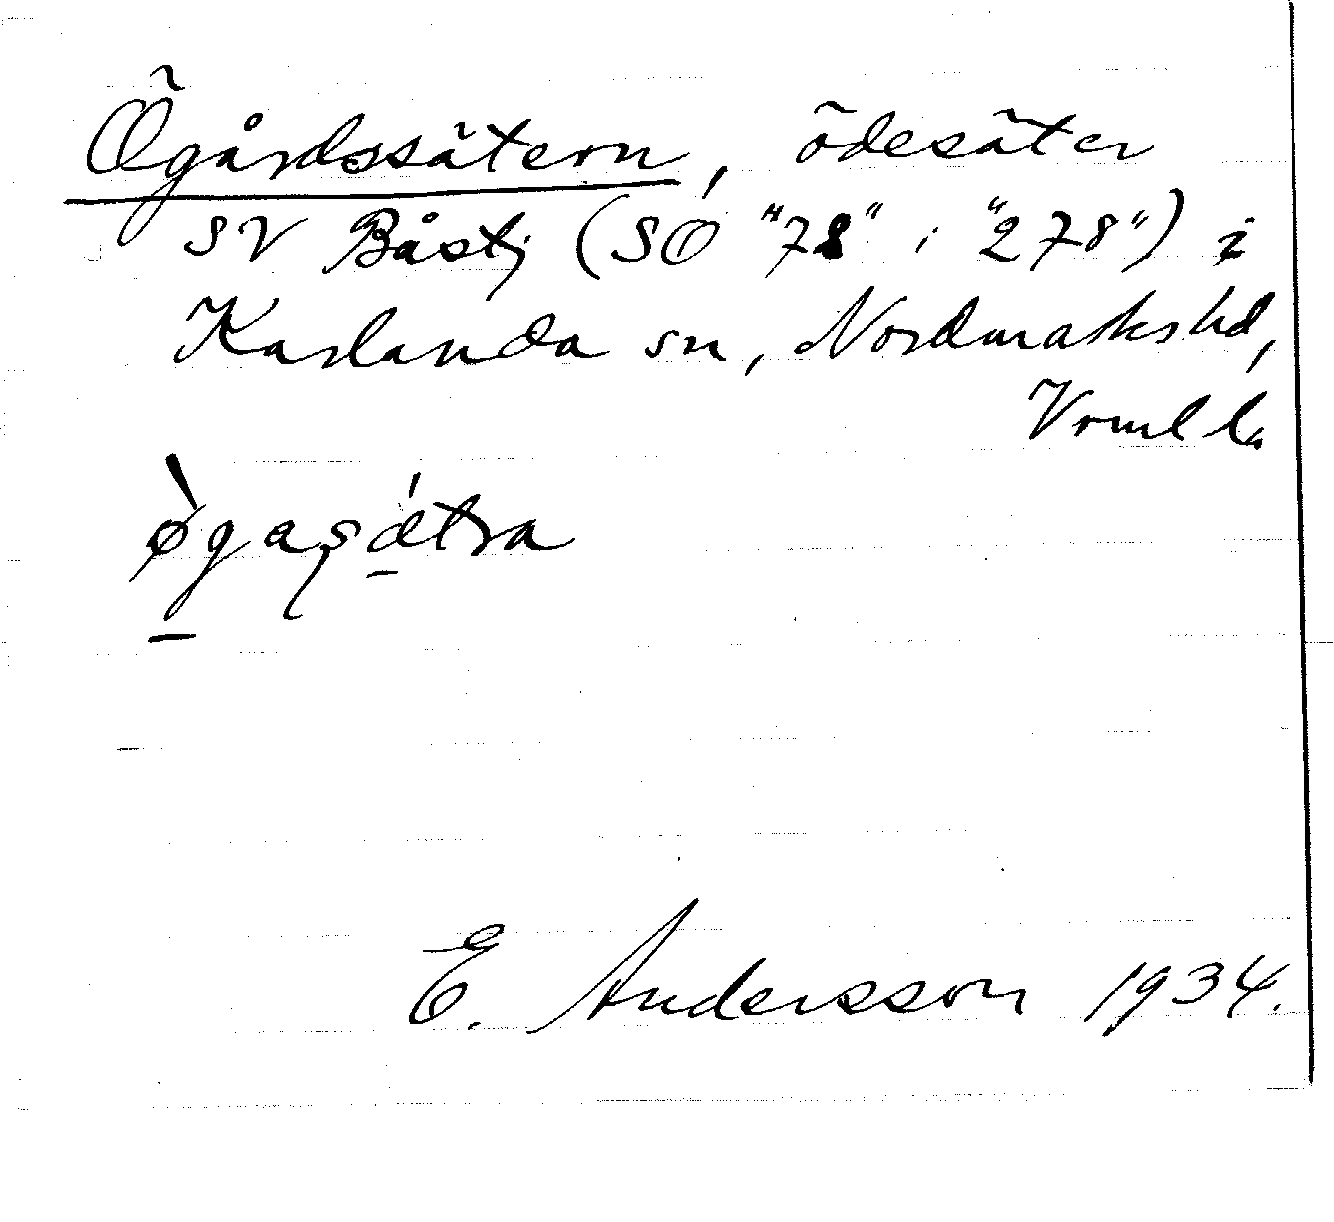 Ögårdssätern, ödesäter
SV Båstj (SO "78" i "278") i
Karlanda sn, Nordmarks hd,
Vrml l.
ø̀gasætra
E. Andersson 1934.